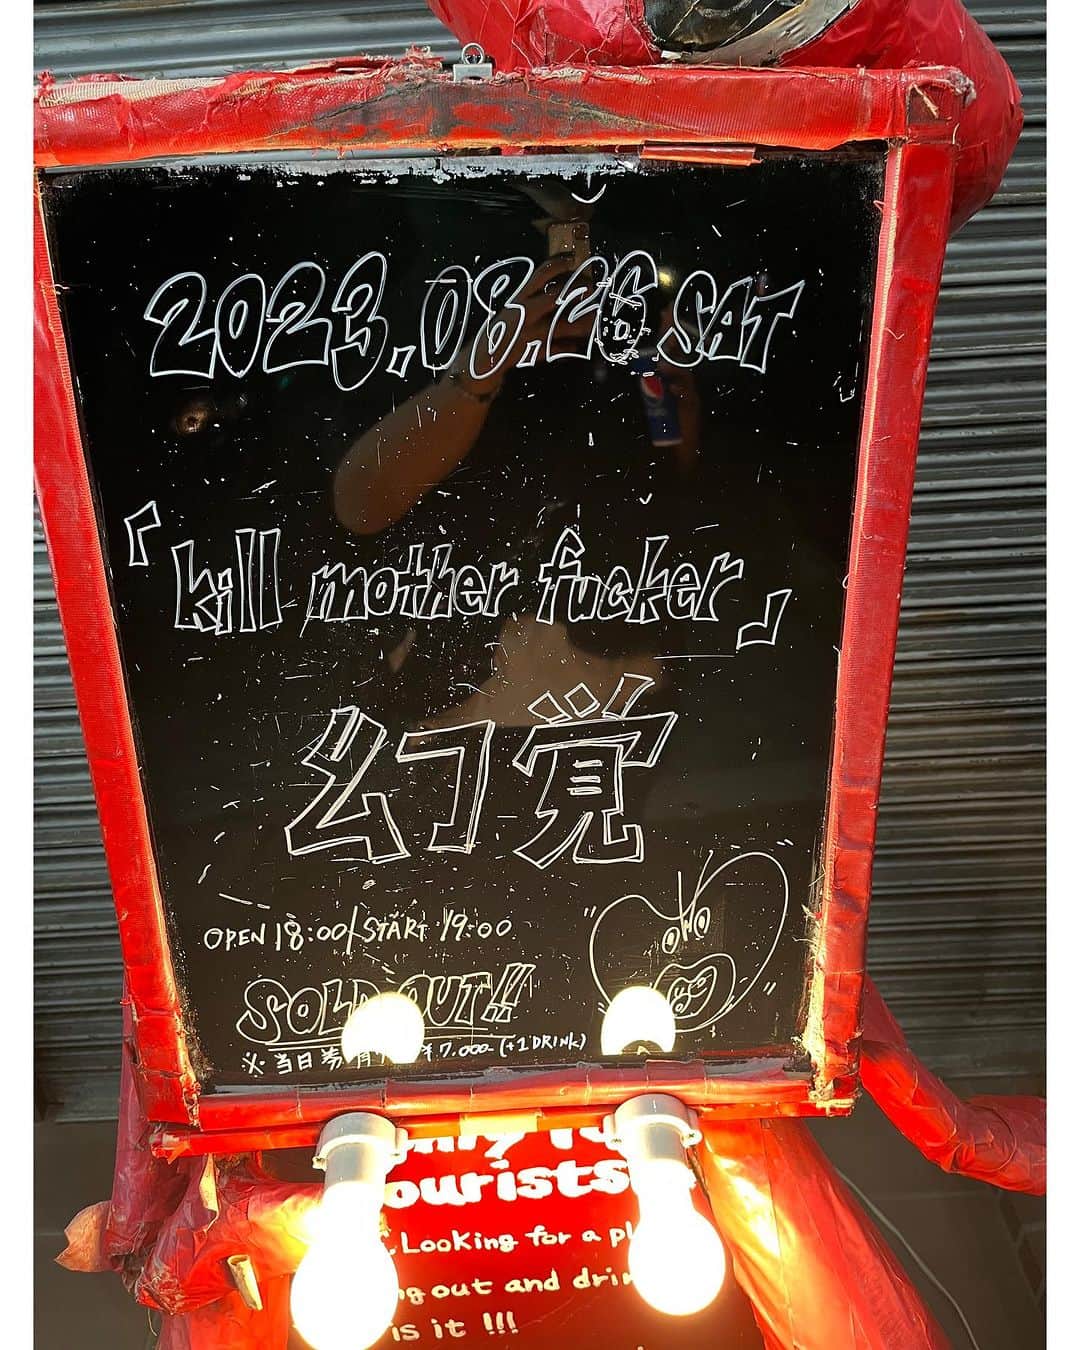 2023.08.26 SAT
「kill mother fucker」
幻覚
OPEN 18:00/START 19:00
SOLD OUT!!
※当日券有 ¥7.000- (+1DRINK)
ourists
Looking for a pl
ng out and drin
is it !!!